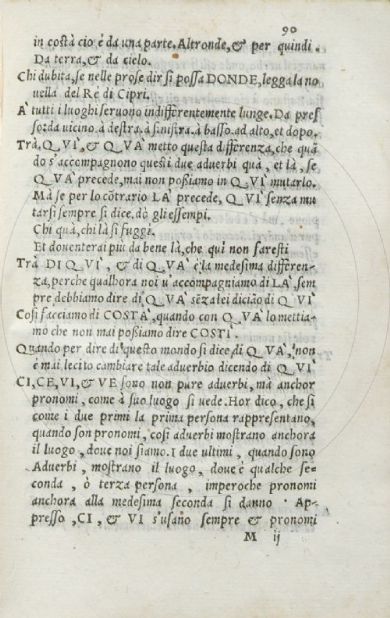 90
in costà cio è da una parte. Altronde, & per quindi.
Da terra, & da cielo.
Chi dubita, se nelle prose dir si possa DONDE, legga la no
uella del Rè di Cipri.
A` tutti i luoghi seruono indifferentemente lunge. Da pres
so: da uicino. à destra. à sinistra. à basso. ad alto, et dopo.
Trà, QVI`, & QVA` metto questa differenza, che quã
do s'accompagnono questi due aduerbi quà, et là, se
QVA` precede, mai non possiamo in QVI` mutarlo.
Mà se per lo cõtrario LA` precede, QVI` senza mu
tarsi sempre si dice. dò gli essempi.
Chi quà, chi là si fuggi.
Et douenterai piu da bene là, che qui non saresti
Trà DI QVI`, & di QVA` è la medesima differen-
za, perche qualhora noi u'accompagniamo di LA`, sem
pre debbiamo dire di QVA` sẽza lei dicião di QVI`
Cosi facciamo di COSTA`, quando con QVA` lo mettia-
mo che non mai possiamo dire COSTI`
Quando per dire di questo mondo si dice di QVA`, non
è mai lecito cambiare tale aduerbio dicendo di QVI`
CI, CE, VI, & VE sono non pure aduerbi, mà anchor
pronomi, come à suo luogo si uede. Hor dico, che si
come i due primi la prima persona rappresentano,
quando son pronomi, cosi aduerbi mostrano anchora
il luogo, doue noi siamo. I due ultimi, quando sono
Aduerbi, mostrano il luogo, doue è qualche se-
conda, ò terza persona, imperoche pronomi
anchora alla medesima seconda si danno. Ap-
presso, CI, & VI s'usano sempre & pronomi
M ij